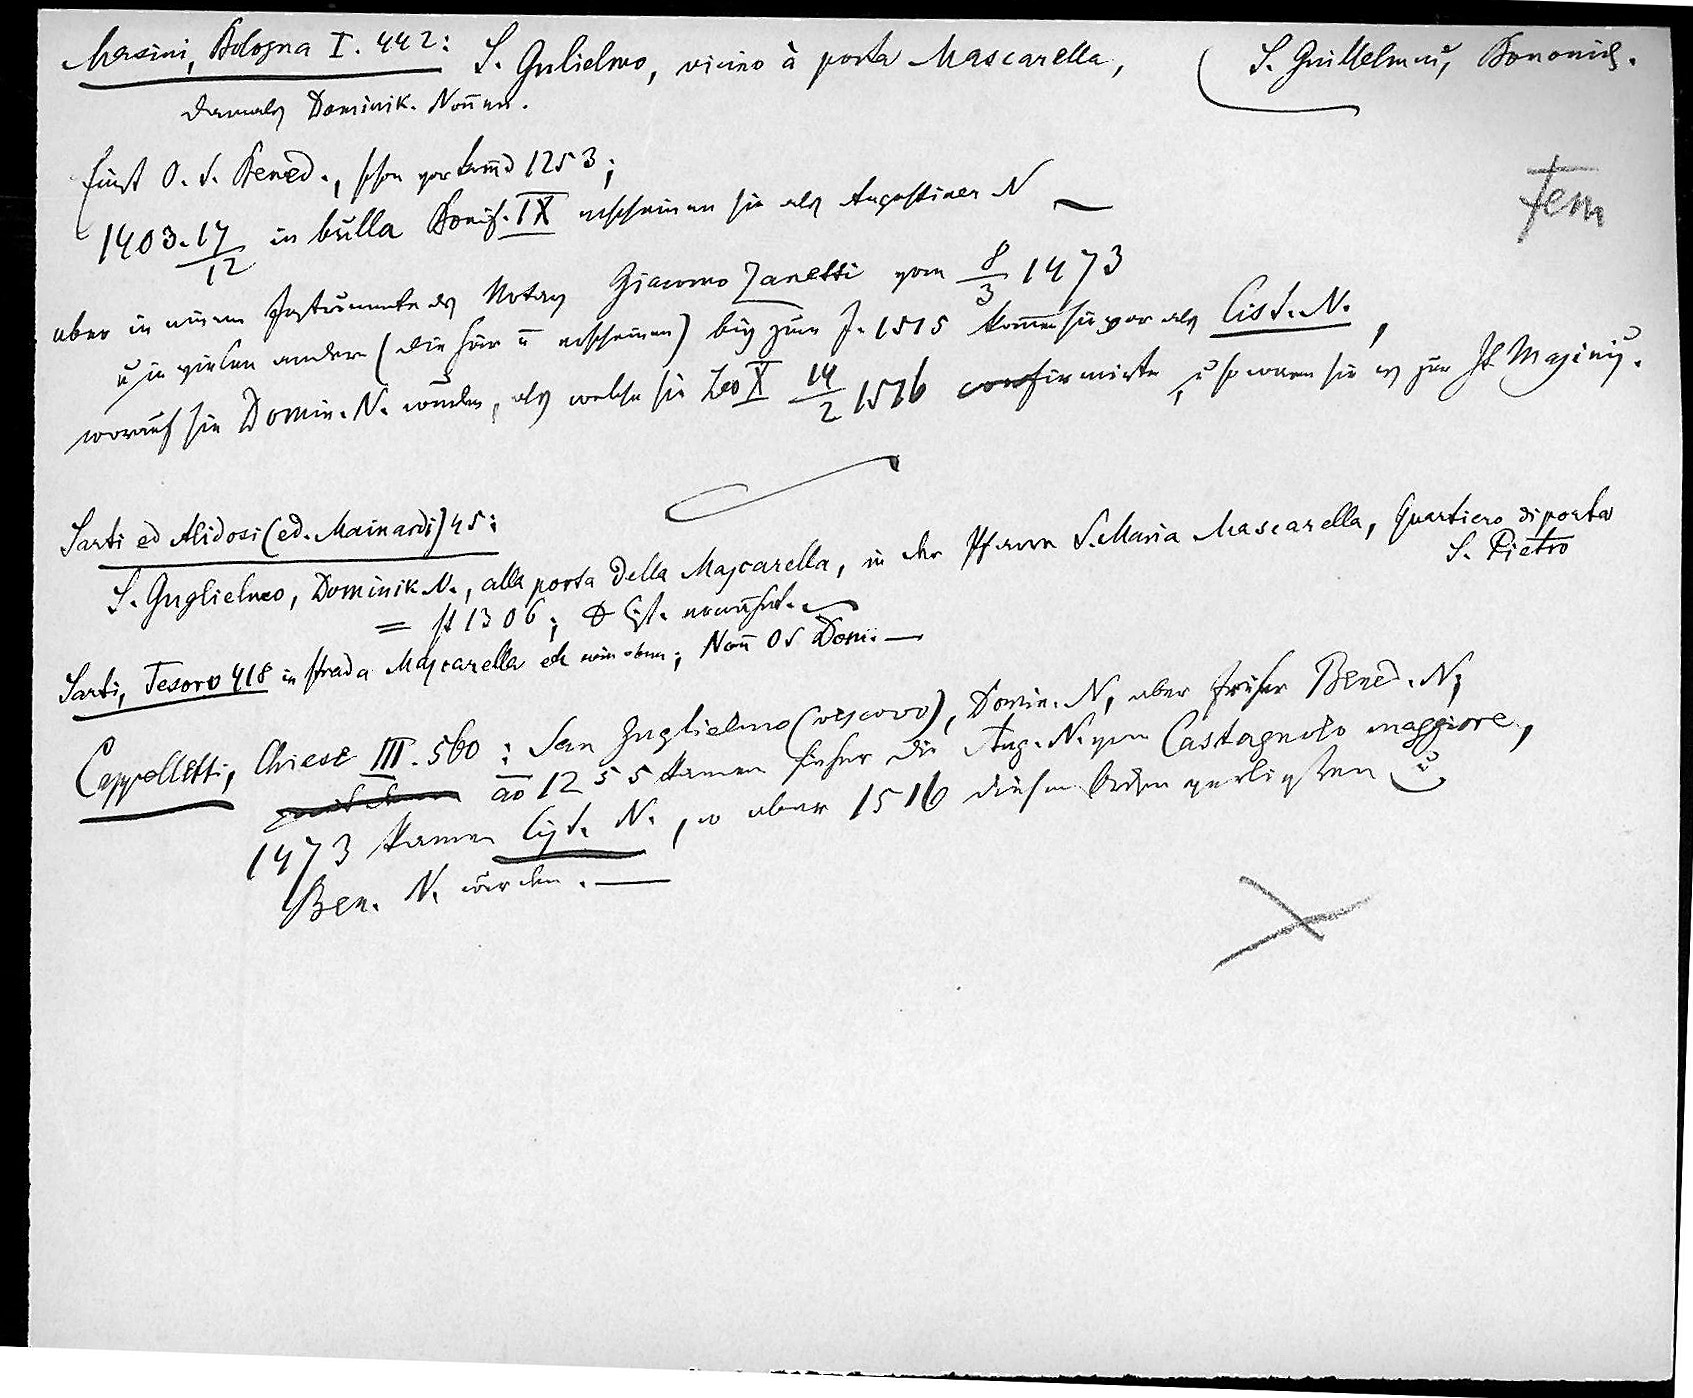 Masini, Bologna I. 442: S. Gulielmo, vicino à porta Mascarella, S. Guillelmus, Bononiens.
damals Dominik. Nonnen.
Einst O. S. Bened., schon 1253;
1403. 17/12 in bulla Bonif. IX erscheinen sie als Augustiner N
aber in einem Instrumente des Notars Giacomo Zanetti vom 8/3 1473
u in vielen andern (die hier u erscheinen) bis zum J. 1515 kommen sie vor als Cist. N.,
worauf sie Domin. N. wurden, als welche sie Leo X 14/2 1516 confirmirte, u so waren sie es zur Zt Masinis.
Sarti ed Alidosi (ed. Mainardi) 45:
S. Guglielmo, Dominik. N., alla porta della Mascarella, in der Pfarre S. Maria Mascarella, Quartiero di porta
S. Pietro
= st 1306; Cist. erwähnt.
Sarti, Tesoro 418 in strada Mascarella etc wie oben; Nonn O S Dom.
Cappelletti, Chiese III. 560: San Guglielmo (vescovo), Domin. N, aber früher Bened. N;
ao 1255 kamen hieher die Aug. N. von Castagnolo maggiore,
1473 kamen Cist. N., aber 1516 diesen Orden verließen u
Ben. N. wurden.
Fem